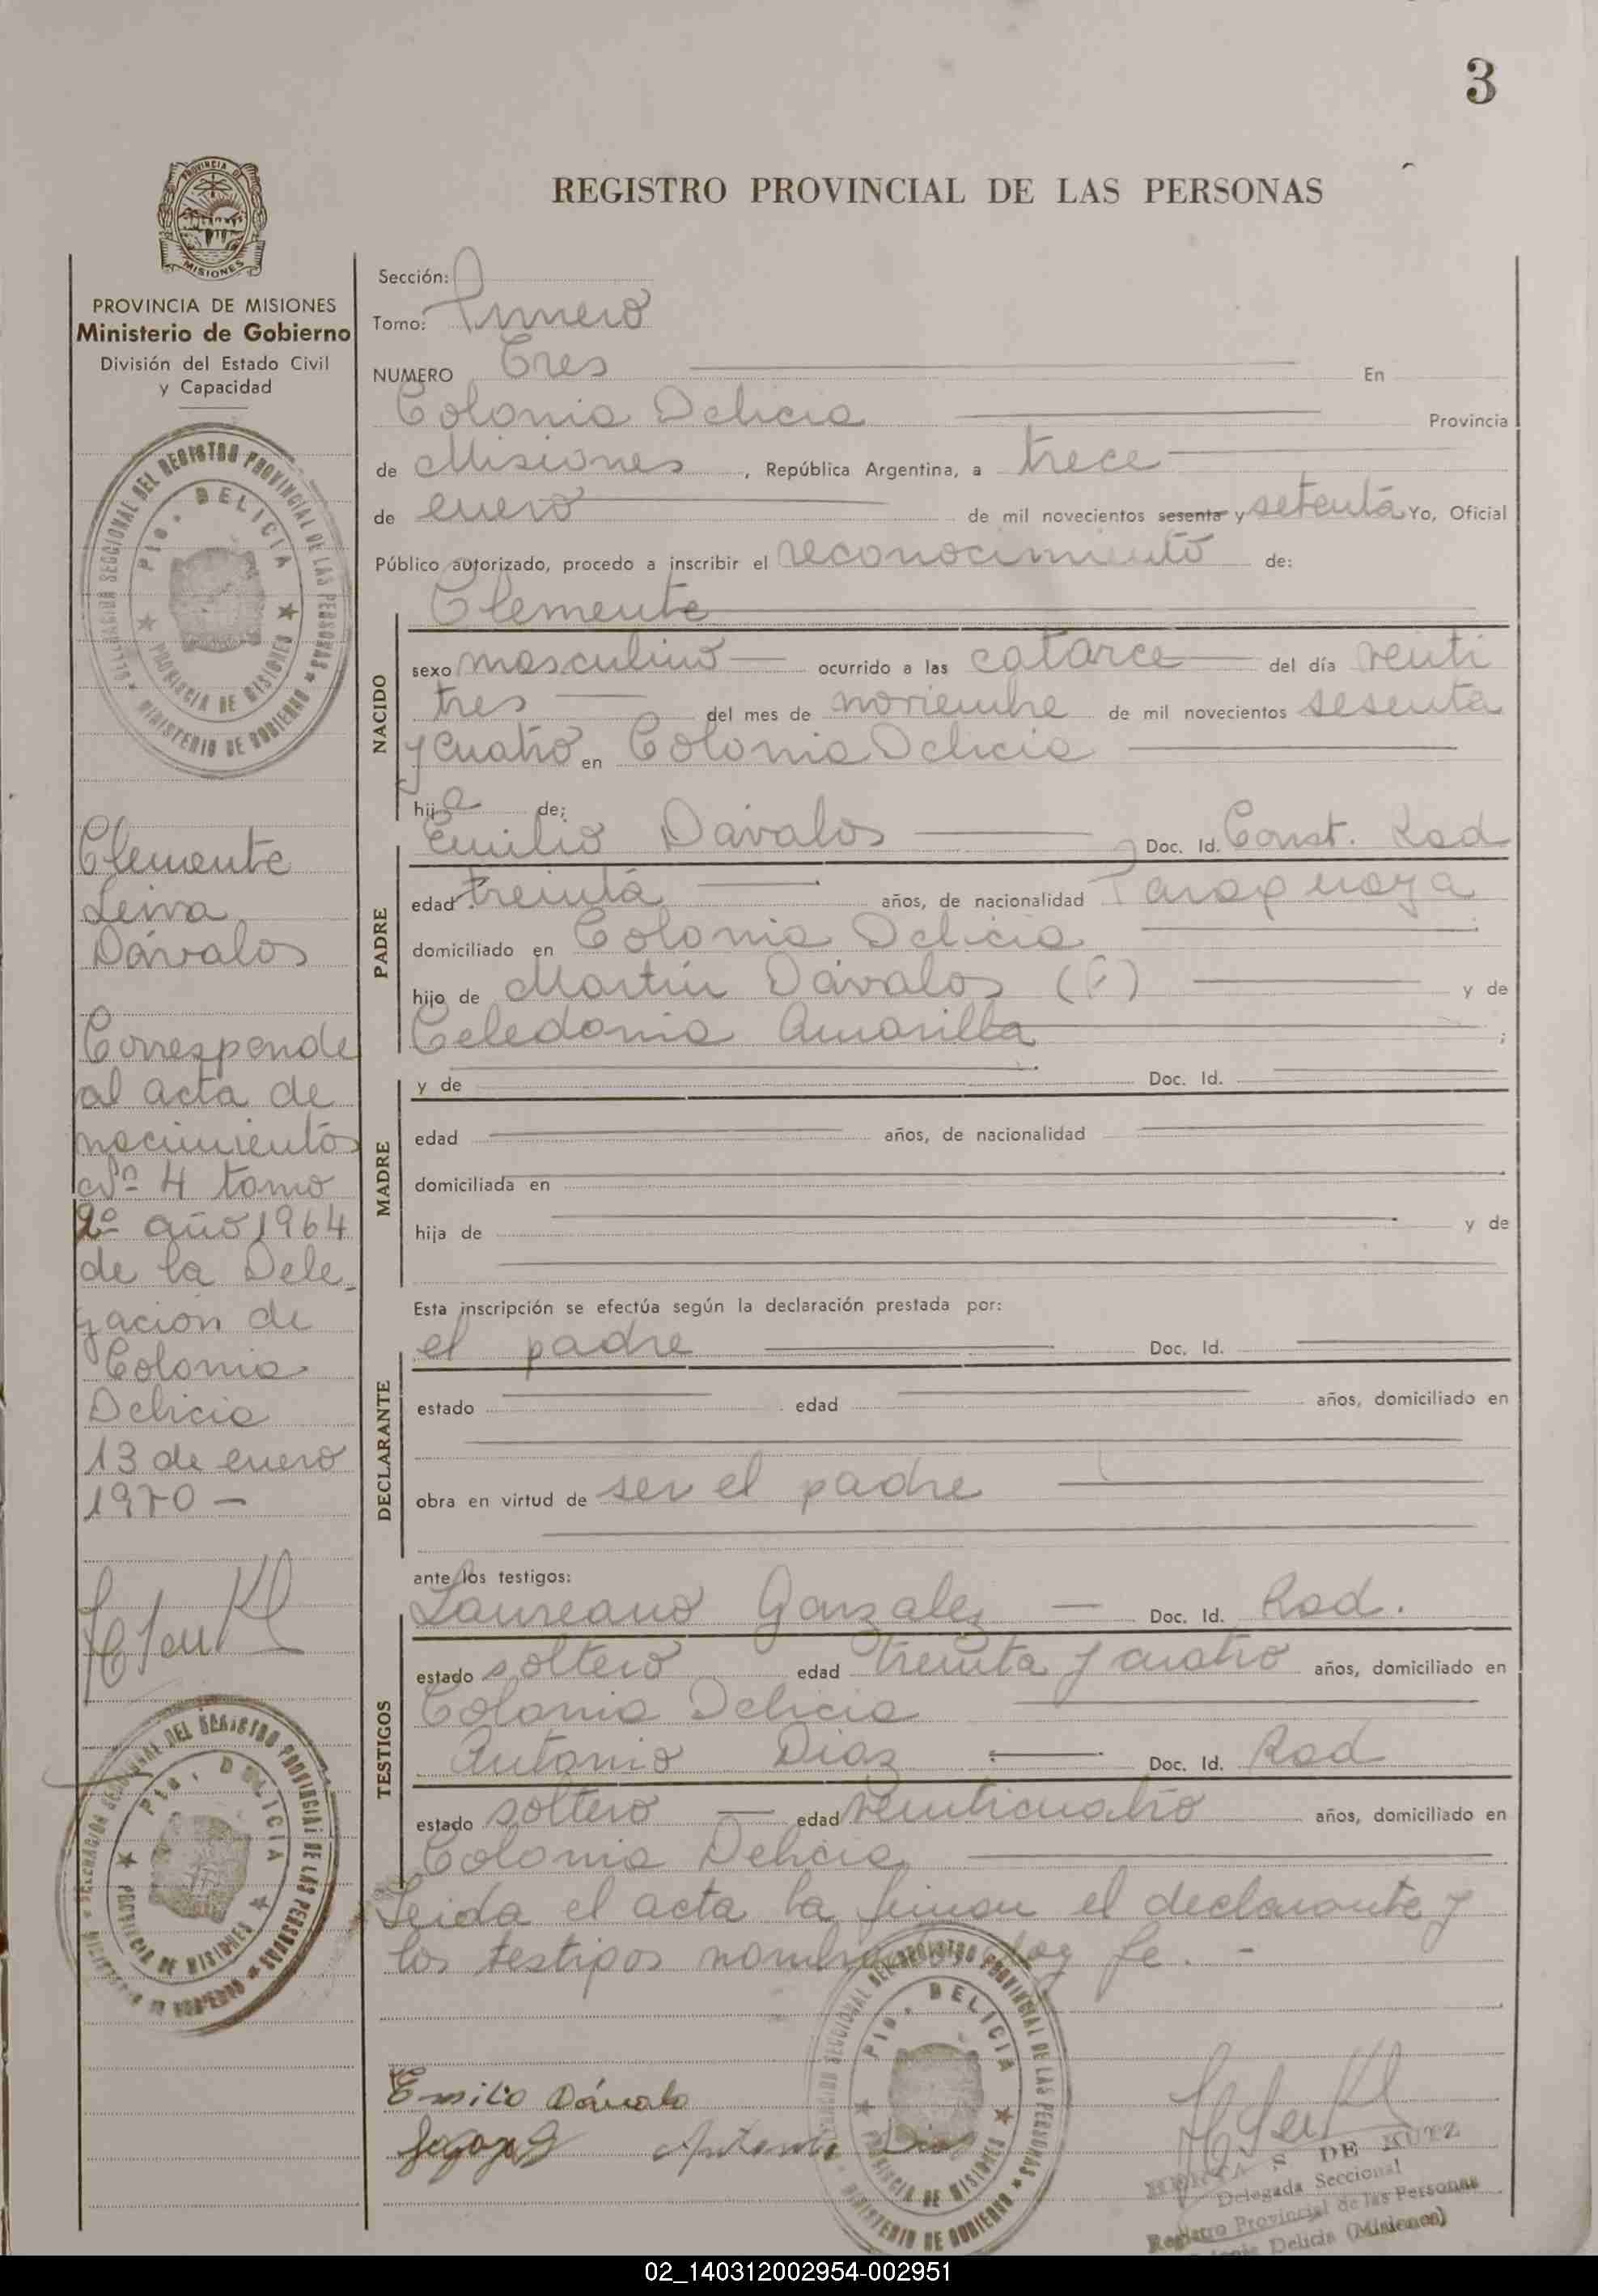 3
PROVINCIA DE
MISIONES
REGISTRO PROVINCIAL DE LAS PERSONAS
PROVINCIA DE MISIONES
Ministerio de Gobierno
División del Estado Civil
y Capacidad
Clemente
Leiva
Dávalos
Corresponde
al acta de
nacimientos
Nº 4 tomo
2º año 1964
de la Dele
gación de
Colonia
Delicia
13 de enero
1970 —
Sección:
Tomo: Primero
NUMERO Tres En
Colonia Delicia Provincia
de Misiones, República Argentina, a trece
de enero de mil novecientos sesenta y setenta Yo, Oficial
Público autorizado, procedo a inscribir el reconocimiento de:
Clemente
NACIDO
sexo masculino ocurrido a las catorce del día venti
tres del mes de noviembre de mil novecientos sesenta
y cuatro en Colonia Delicia
hijo de:
PADRE
Emilio Dávalos Doc. Id. Const. Rad
edad treinta años, de nacionalidad Paraguaya
domiciliado en Colonia Delicia
hijo de Martín Dávalos (f) y de
Celedonia Amarilla ;
MADRE
y de Doc. Id.
edad años, de nacionalidad
domiciliada en
hija de y de
Esta inscripción se efectúa según la declaración prestada por:
DECLARANTE
el padre Doc. Id.
estado edad años, domiciliado en
obra en virtud de ser el padre
ante los testigos:
TESTIGOS
Laureano Gonzalez Doc. Id. Rad.
estado soltero edad treinta y cuatro años, domiciliado en
Colonia Delicia
Antonio Diaz Doc. Id. Rad
estado soltero edad veinticuatro años, domiciliado en
Colonia Delicia
Leida el acta la firman el declarante y
los testigos doy fe. -
Emilio Dávalo
Antonio Dias
S DE KUTZ
Delegada Seccional
Registro Provincial de las Personas
Delicia (Misiones)
DELEGACION SECCIONAL DEL REGISTRO PROVINCIAL DE LAS PERSONAS
MINISTERIO DE GOBIERNO
Pto. DELICIA
PROVINCIA DE MISIONES
02_140312002954-002951